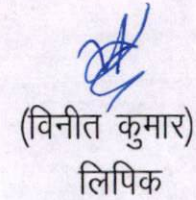 (विनीत कुमार)
लिपिक